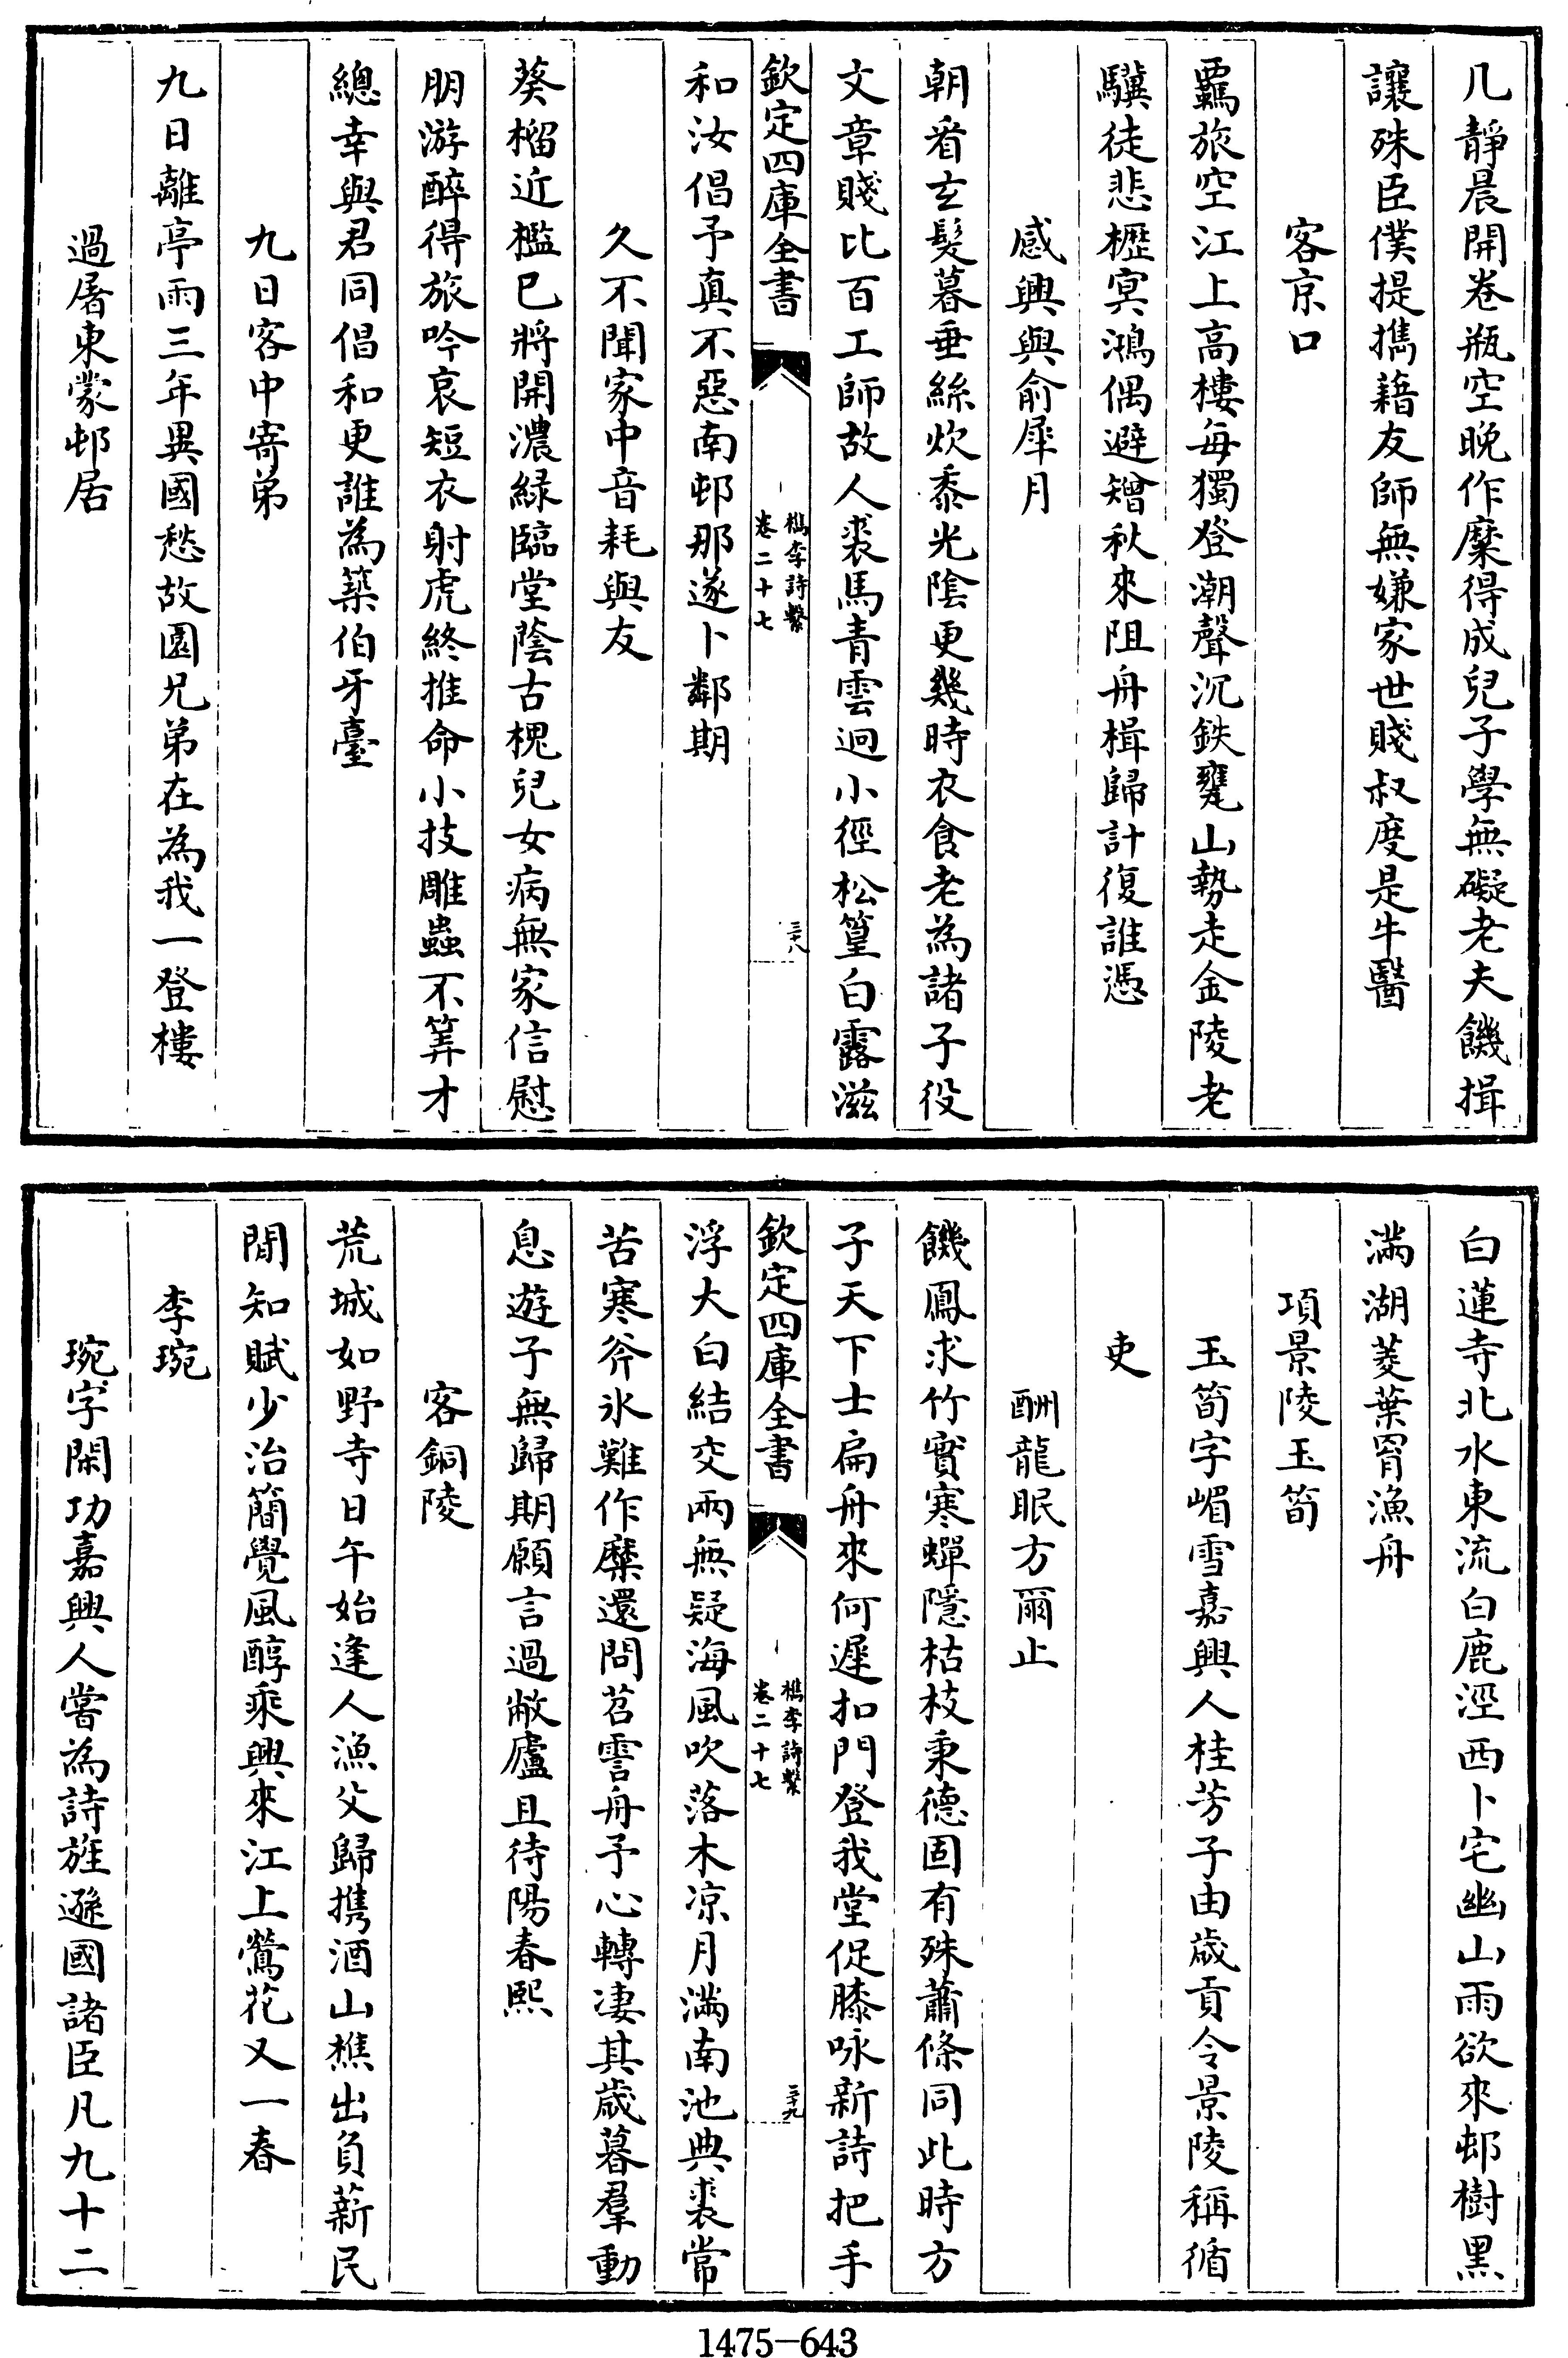 几靜晨開卷瓶空晚作糜得成兒子學無礙老夫饑揖
讓殊臣僕提擕藉友師無嫌家世賤叔度是牛醫
客京口
覊旅空江上高樓每獨登潮聲沉鉄甕山勢走金陵老
驥徒悲櫪㝠鴻偶避矰秋來阻舟楫歸計復誰憑
感興與俞犀月
朝看玄髮暮垂絲炊黍光陰更幾時衣食老為諸子役
文章賤比百工師故人裘馬青雲迥小徑松篁白露滋
欽定四庫全書
檇李詩繫
卷二十七
三十八
和汝倡予真不惡南邨那遂卜鄰期
久不聞家中音耗與友
葵榴近檻已將開濃緑臨堂蔭古槐兒女病無家信慰
朋游醉得旅吟哀短衣射虎終推命小技雕蟲不筭才
總幸與君同倡和更誰為築伯牙臺
九日客中寄弟
九日離亭雨三年異國愁故園兄弟在為我一登樓
過屠東蒙邨居
白蓮寺北水東流白鹿涇西卜宅幽山雨欲來邨樹黑
滿湖菱葉罥漁舟
項景陵玉筍
玉筍字嵋雪嘉興人桂芳子由歲貢令景陵稱循
吏
酬龍眠方爾止
饑鳳求竹實寒蟬隱枯枝秉德固有殊蕭條同此時方
子天下士扁舟來何遲扣門登我堂促膝咏新詩把手
欽定四庫全書
檇李詩繫
卷二十七
三十九
浮大白結交兩無疑海風吹落木凉月滿南池典裘常
苦寒斧氷難作糜還問苕霅舟予心轉凄其歲暮羣動
息遊子無歸期願言過敝廬且待陽春熙
客銅陵
荒城如野寺日午始逢人漁父歸携酒山樵出負薪民
閒知賦少治簡覺風醇乘興來江上鶯花又一春
李琬
琬字閑功嘉興人嘗為詩旌遜國諸臣凡九十二
1475-643